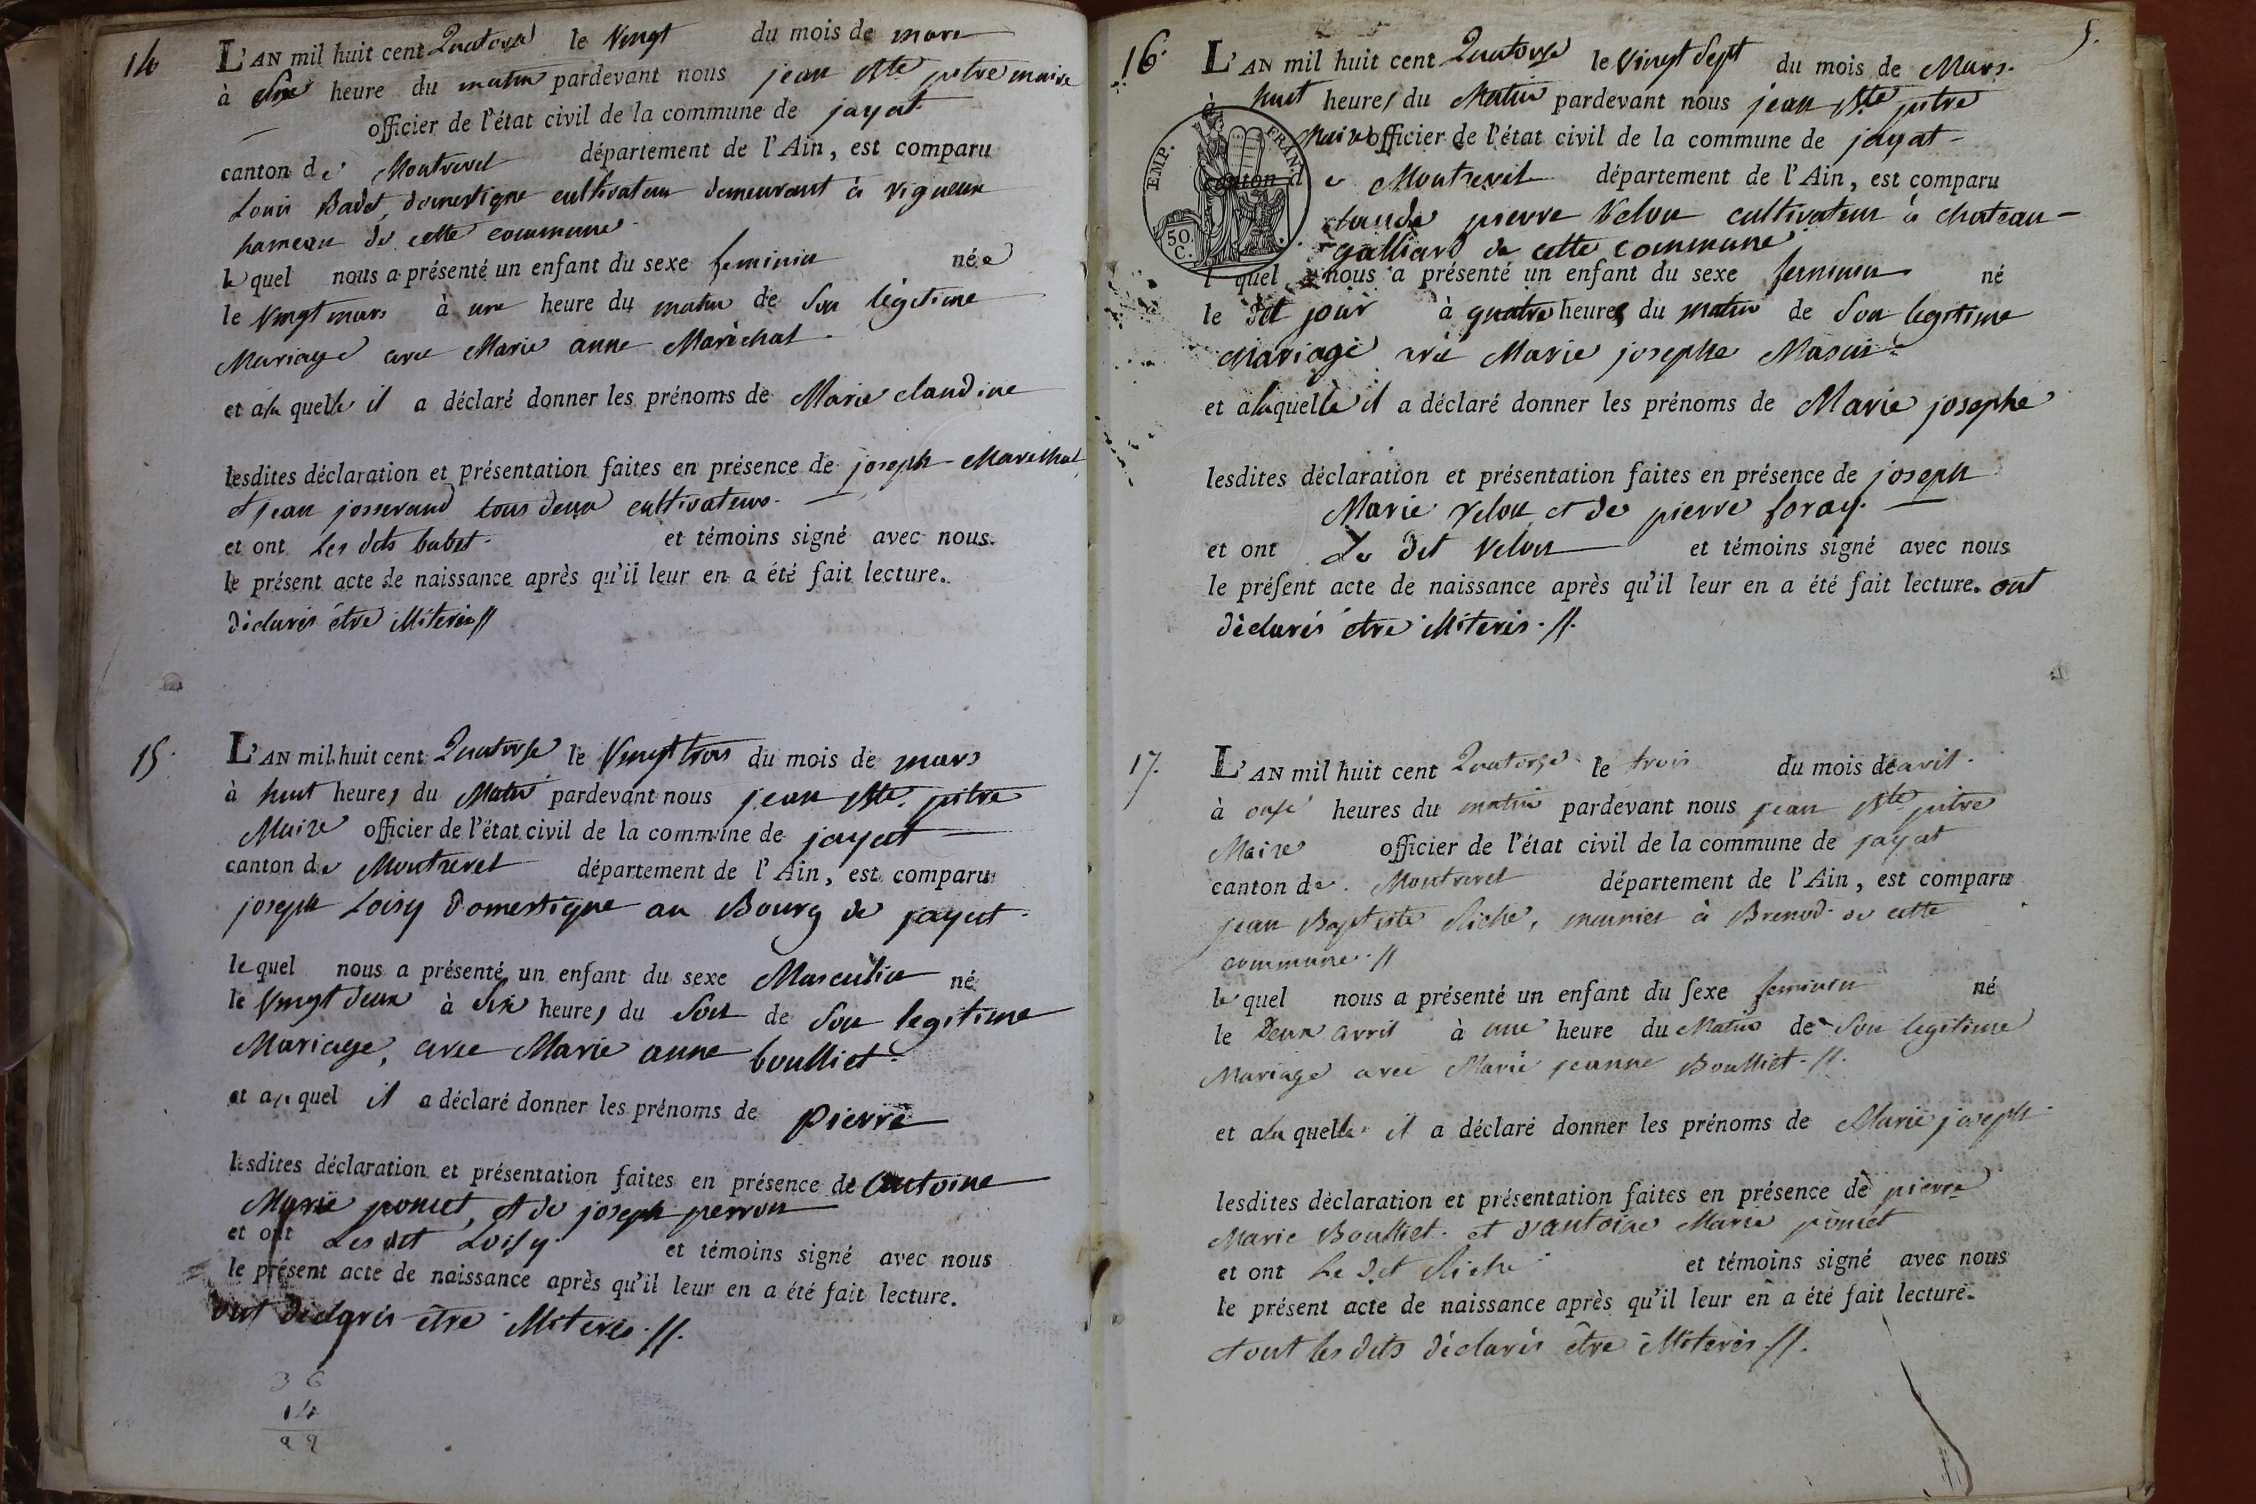 14
L'AN mil huit cent Quatorze le Vingt du mois de mars
à heure du matin pardevant nous jean Bte pitre maire
officier de l'état civil de la commune de jayat
canton de Montrevel département de l'Ain, est comparu
Louis Badet, domestique cultivateur demeurant à vigueur
hameau de cette commune
lequel nous a présenté un enfant du sexe feminin née
le Vingt mars à une heure du matin de Son légitime
Mariage avec Marie anne Maréchal
et à la quelle il a déclaré donner les prénoms de Marie claudine
lesdites déclaration et présentation faites en présence de joseph Maréchal
et jean josserand tous deux cultivateurs
et ont Les dits badet et témoins signé avec nous
le présent acte de naissance après qu'il leur en a été fait lecture.
déclarés être illiterés //
15.
L'AN mil huit cent Quatorze le Vingt trois du mois de mars
à huit heures du Matin pardevant nous jean Bte. pitre
Maire officier de l'état civil de la commune de jayat
canton de Montrevel département de l'Ain, est comparu
joseph Loisy Domestique au Bourg de jayat
lequel nous a présenté un enfant du sexe Masculin né
le Vingt deux à Six heures du Soir de Son legitime
Mariage, avec Marie anne boulliet
et au quel il a déclaré donner les prénoms de pierre
lesdites déclaration et présentation faites en présence de antoine
Marie poncet, et de joseph perron
et ont Les dit Loisy et témoins signé avec nous
le présent acte de naissance après qu'il leur en a été fait lecture.
ont déclarés être illiterés //.
36
14
16.
5.
L'AN mil huit cent Quatorze le Vingt Sept du mois de Mars
à huit heures du Matin pardevant nous jean Bte pitre
Maire officier de l'état civil de la commune de jayat
EMP. FRAN. 50. C.
canton de Montrevel département de l'Ain, est comparu
claude pierre Velon cultivateur à chateau-
galliard de cette commune
lequel nous a présenté un enfant du sexe feminin né
le dit jour à quatre heures du matin de Son legitime
Mariage avec Marie josephe
et à laquelle il a déclaré donner les prénoms de Marie josephe
lesdites déclaration et présentation faites en présence de joseph
Marie Velon et de pierre foray.
et ont Le dit Velon et témoins signé avec nous
le présent acte de naissance après qu'il leur en a été fait lecture. ont
déclarés être illiterés. //.
17.
L'AN mil huit cent Quatorze le trois du mois de avril
à onze heures du matin pardevant nous jean Bte pitre
Maire officier de l'état civil de la commune de jayat
canton de Montrevel département de l'Ain, est comparu
jean Baptiste Riche, meunier à Brenod de cette
commune. //
lequel nous a présenté un enfant du sexe feminin né
le Deux avril à une heure du Matin de Son legitime
Mariage avec Marie jeanne Boulliet. //.
et à la quelle il a déclaré donner les prénoms de Marie joseph
lesdites déclaration et présentation faites en présence de pierre
Marie Boulliet et d'antoine Marie poncet
et ont Le dit Riche et témoins signé avec nous
le présent acte de naissance après qu'il leur en a été fait lecture.
et ont les dits déclarés être illiterés //.